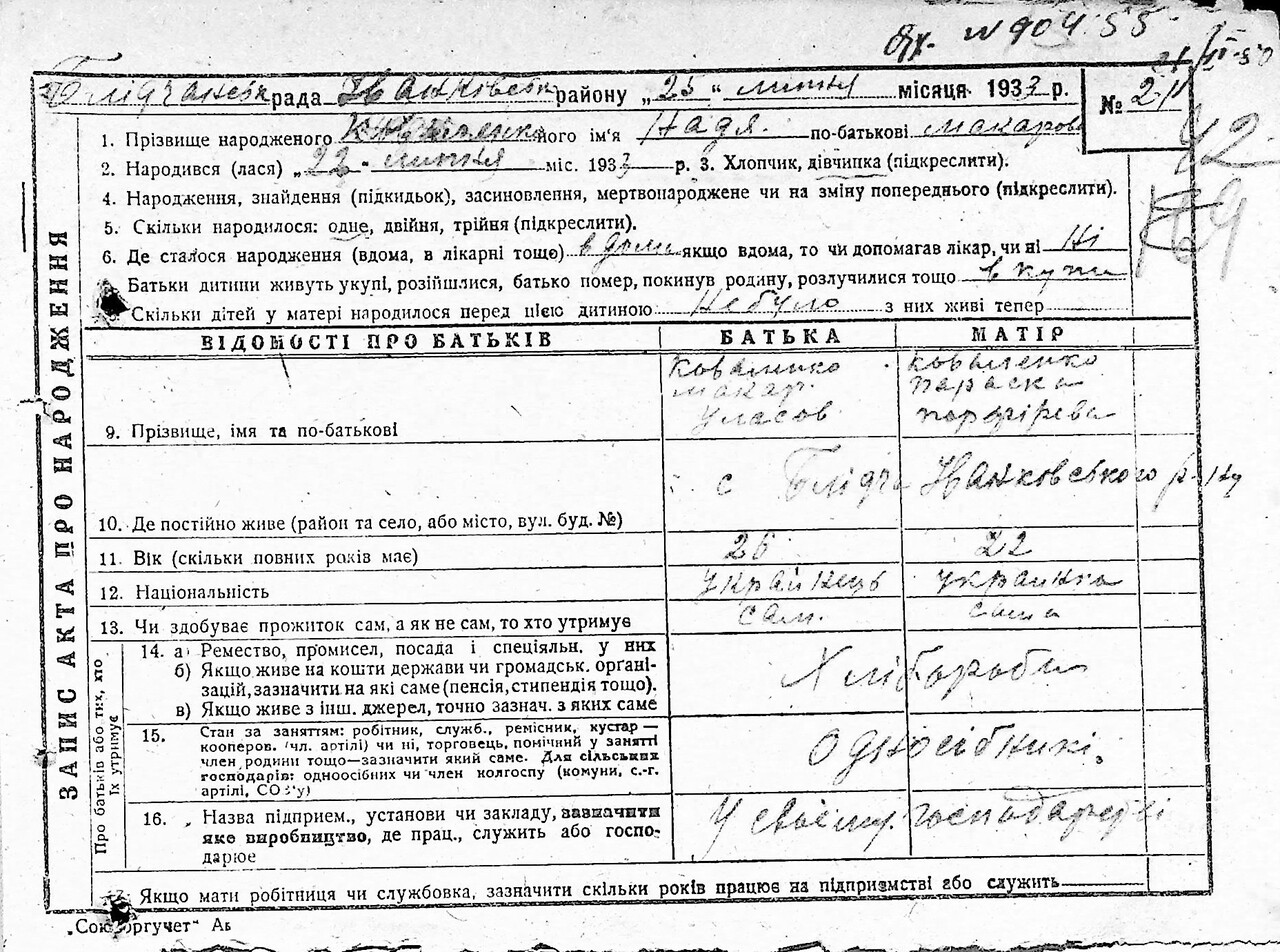 № 904. 55
Блідчанська рада Іванківськ району „25“ лютня місяця 1933 р.
№ 2
1. Прізвище народженого Коваленко його ім'я Надя. по-батькові макарова
2. Народився (лася) „22“ лютня міс. 1933 р. 3. Хлопчик, дівчинка (підкреслити).
42
4. Народження, знайдення (підкидьок), засиновлення, мертвонароджене чи на зміну попереднього (підкреслити).
5. Скільки народилося: одне, двійня, трійня (підкреслити).
6. Де сталося народження (вдома, в лікарні тощо) в дома якщо вдома, то чи допомагав лікар, чи ні Ні
Батьки дитини живуть укупі, розійшлися, батько помер, покинув родину, розлучилися тощо в купи
Скільки дітей у матері народилося перед цією дитиною Небуло з них живі тепер
ЗАПИС АКТА ПРО НАРОДЖЕННЯ
ВІДОМОСТІ ПРО БАТЬКІВ БАТЬКА МАТІР
Коваленко коваленко
макар параска
9. Прізвище, імя та по-батькові Уласов порфірева
10. Де постійно живе (район та село, або місто, вул. буд. №) с Блідча Іванковського р-ну
11. Вік (скільки повних років має) 26 22
12. Національність українець українка
13. Чи здобуває прожиток сам, а як не сам, то хто утримує сам. сама
Про батьків або тих, хто їх утримує
14. а) Ремество, промисел, посада і спеціяльн. у них
б) Якщо живе на кошти держави чи громадськ. органі-
зацій, зазначити на які саме (пенсія, стипендія тощо). Хлібороби
в) Якщо живе з інш. джерел, точно зазнач. з яких саме
15. Стан за заняттям: робітник, служб., ремісник, кустар —
кооперов. (чл. артілі) чи ні, торговець, помічний у занятті
член родини тощо—зазначити який саме. Для сільських Односібникі,
господарів: одноосібних чи член колгоспу (комуни, с.-г.
артілі, СОЗ'у)
16. Назва підприєм., установи чи закладу, зазначити
яке виробництво, де прац., служить або госпо- У своему господарстві
дарює
17. Якщо мати робітниця чи службовка, зазначити скільки років працює на підприємстві або служить
„Союзоргучет“